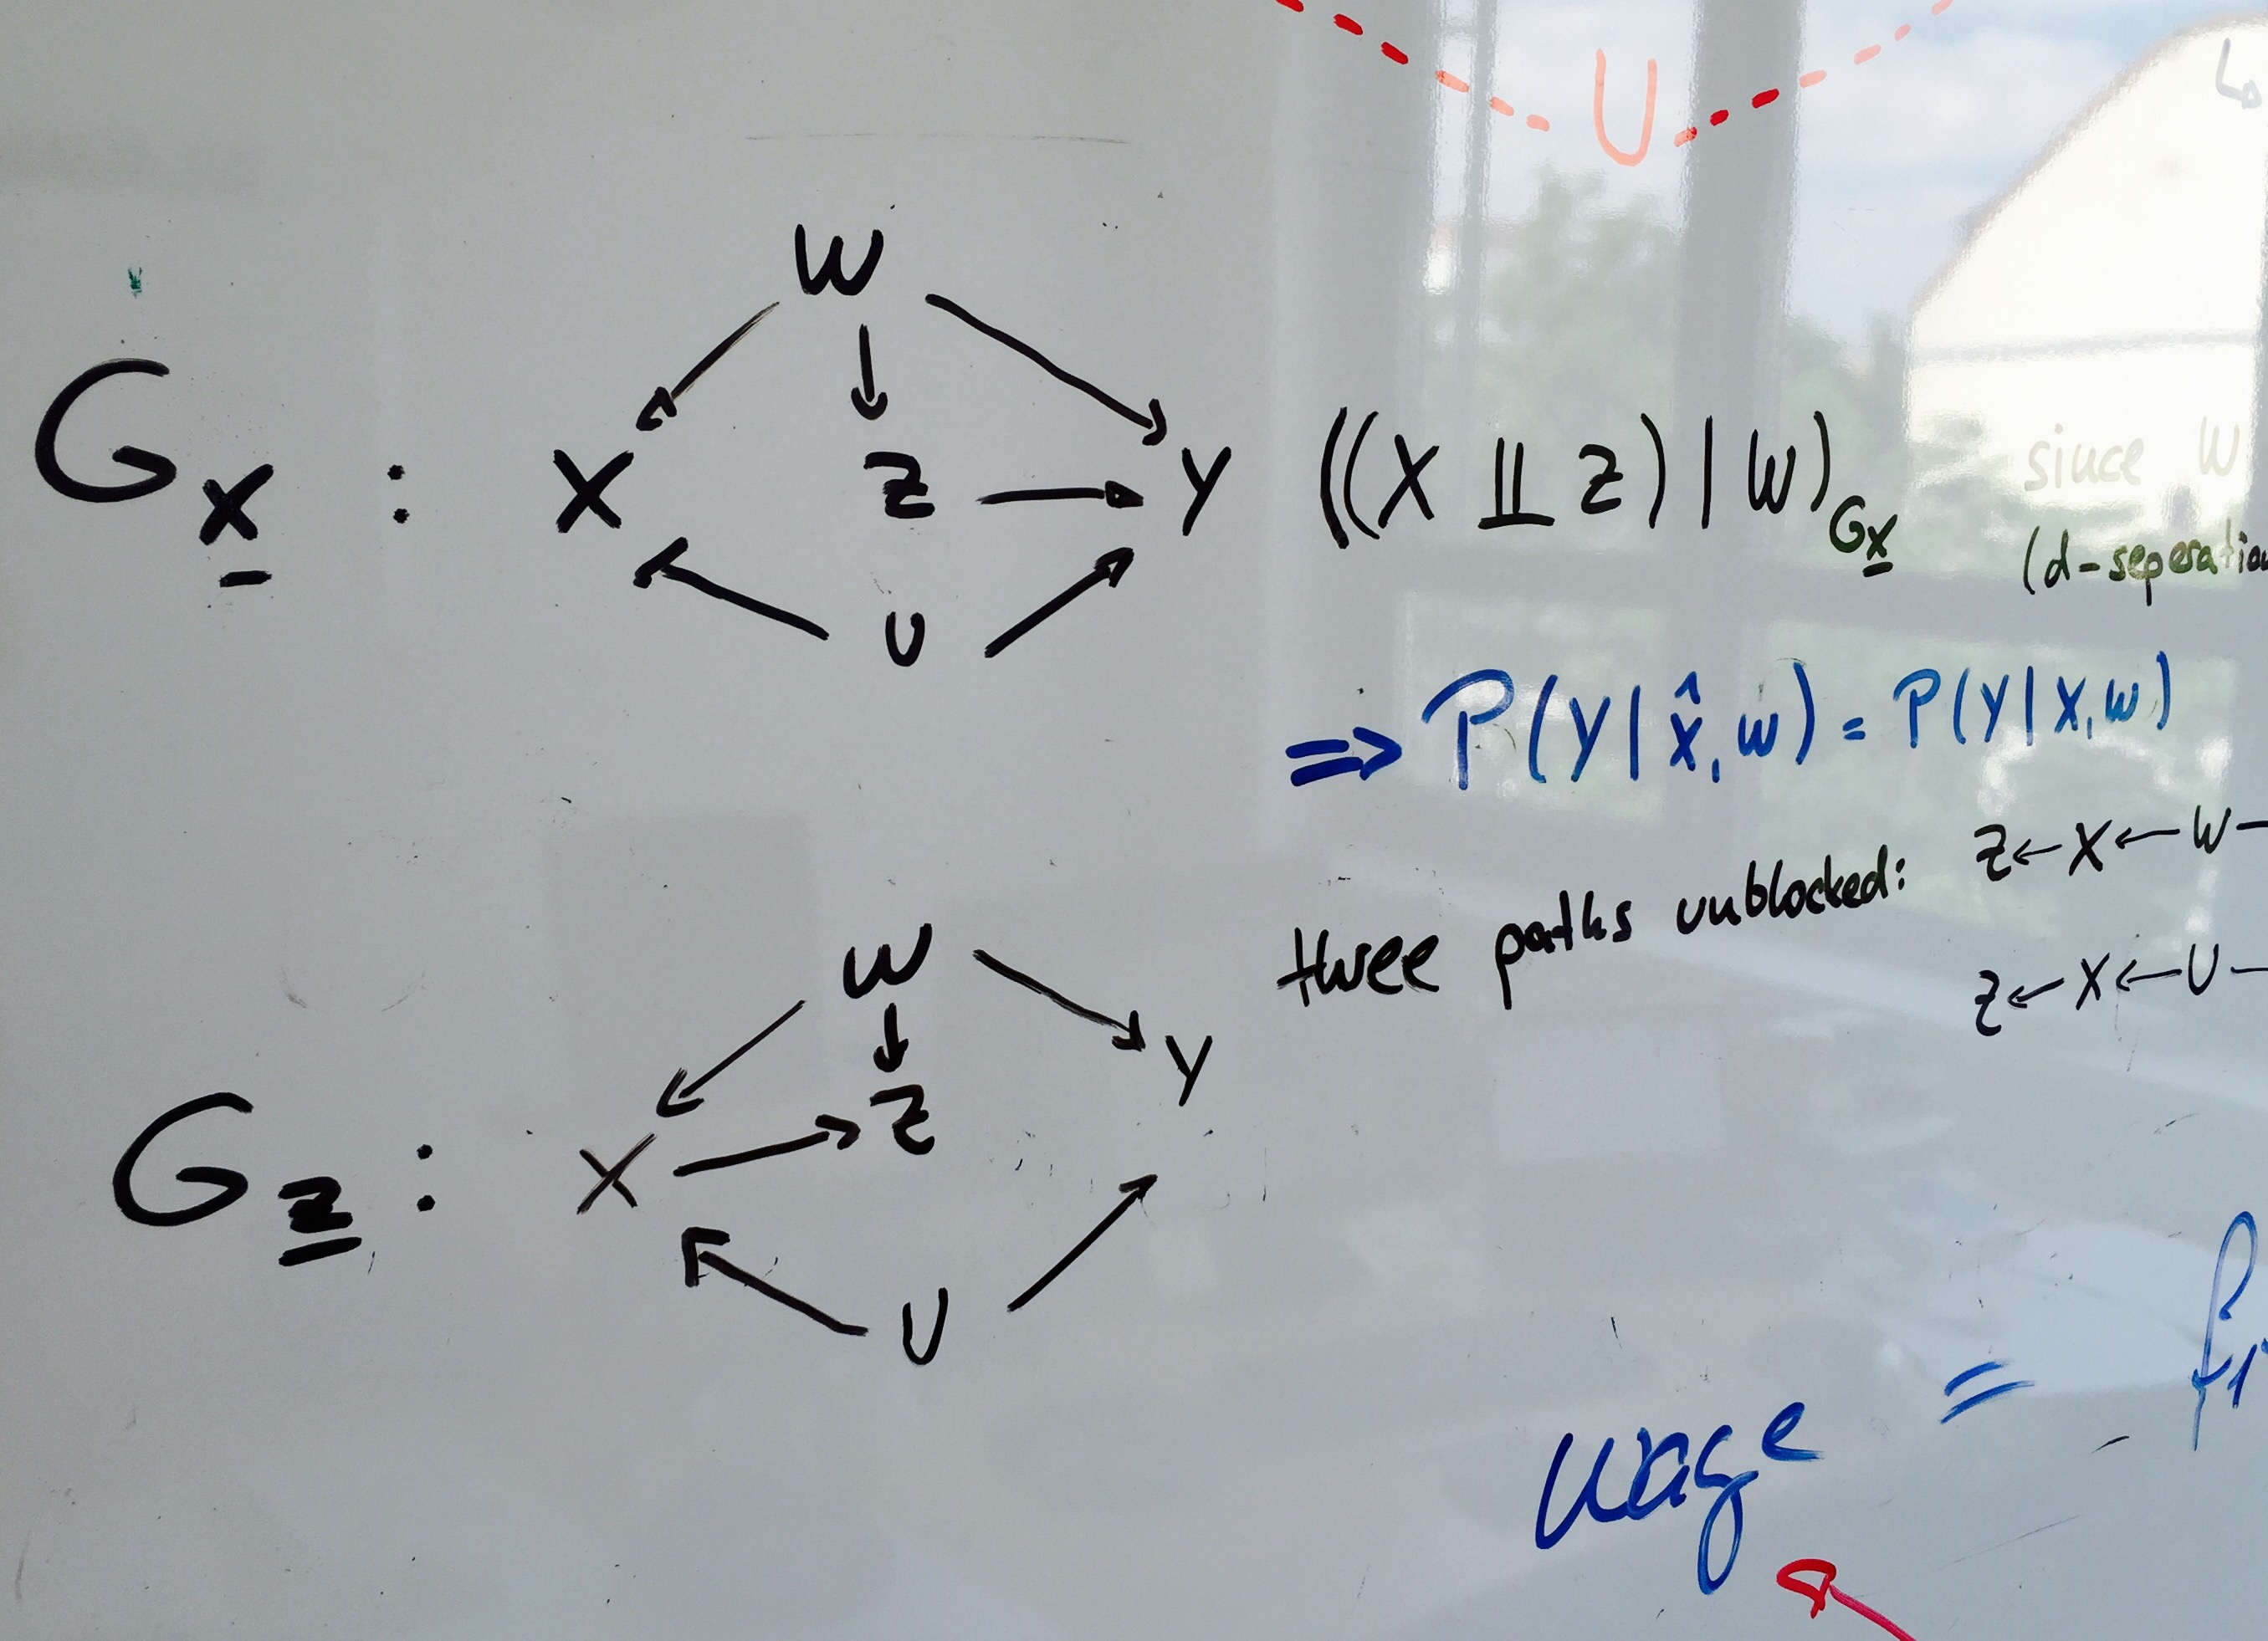 U
W
G_X : X Z Y ((X ⫫ Z) | W)_{G_X} since W
U (d-seperation
⇒ P(Y | x̂, w) = P(Y | X, w)
three paths unblocked: Z ← X ← W –
Z ← X ← U –
W
Y
G_Z : X Z
U
wage = f₁